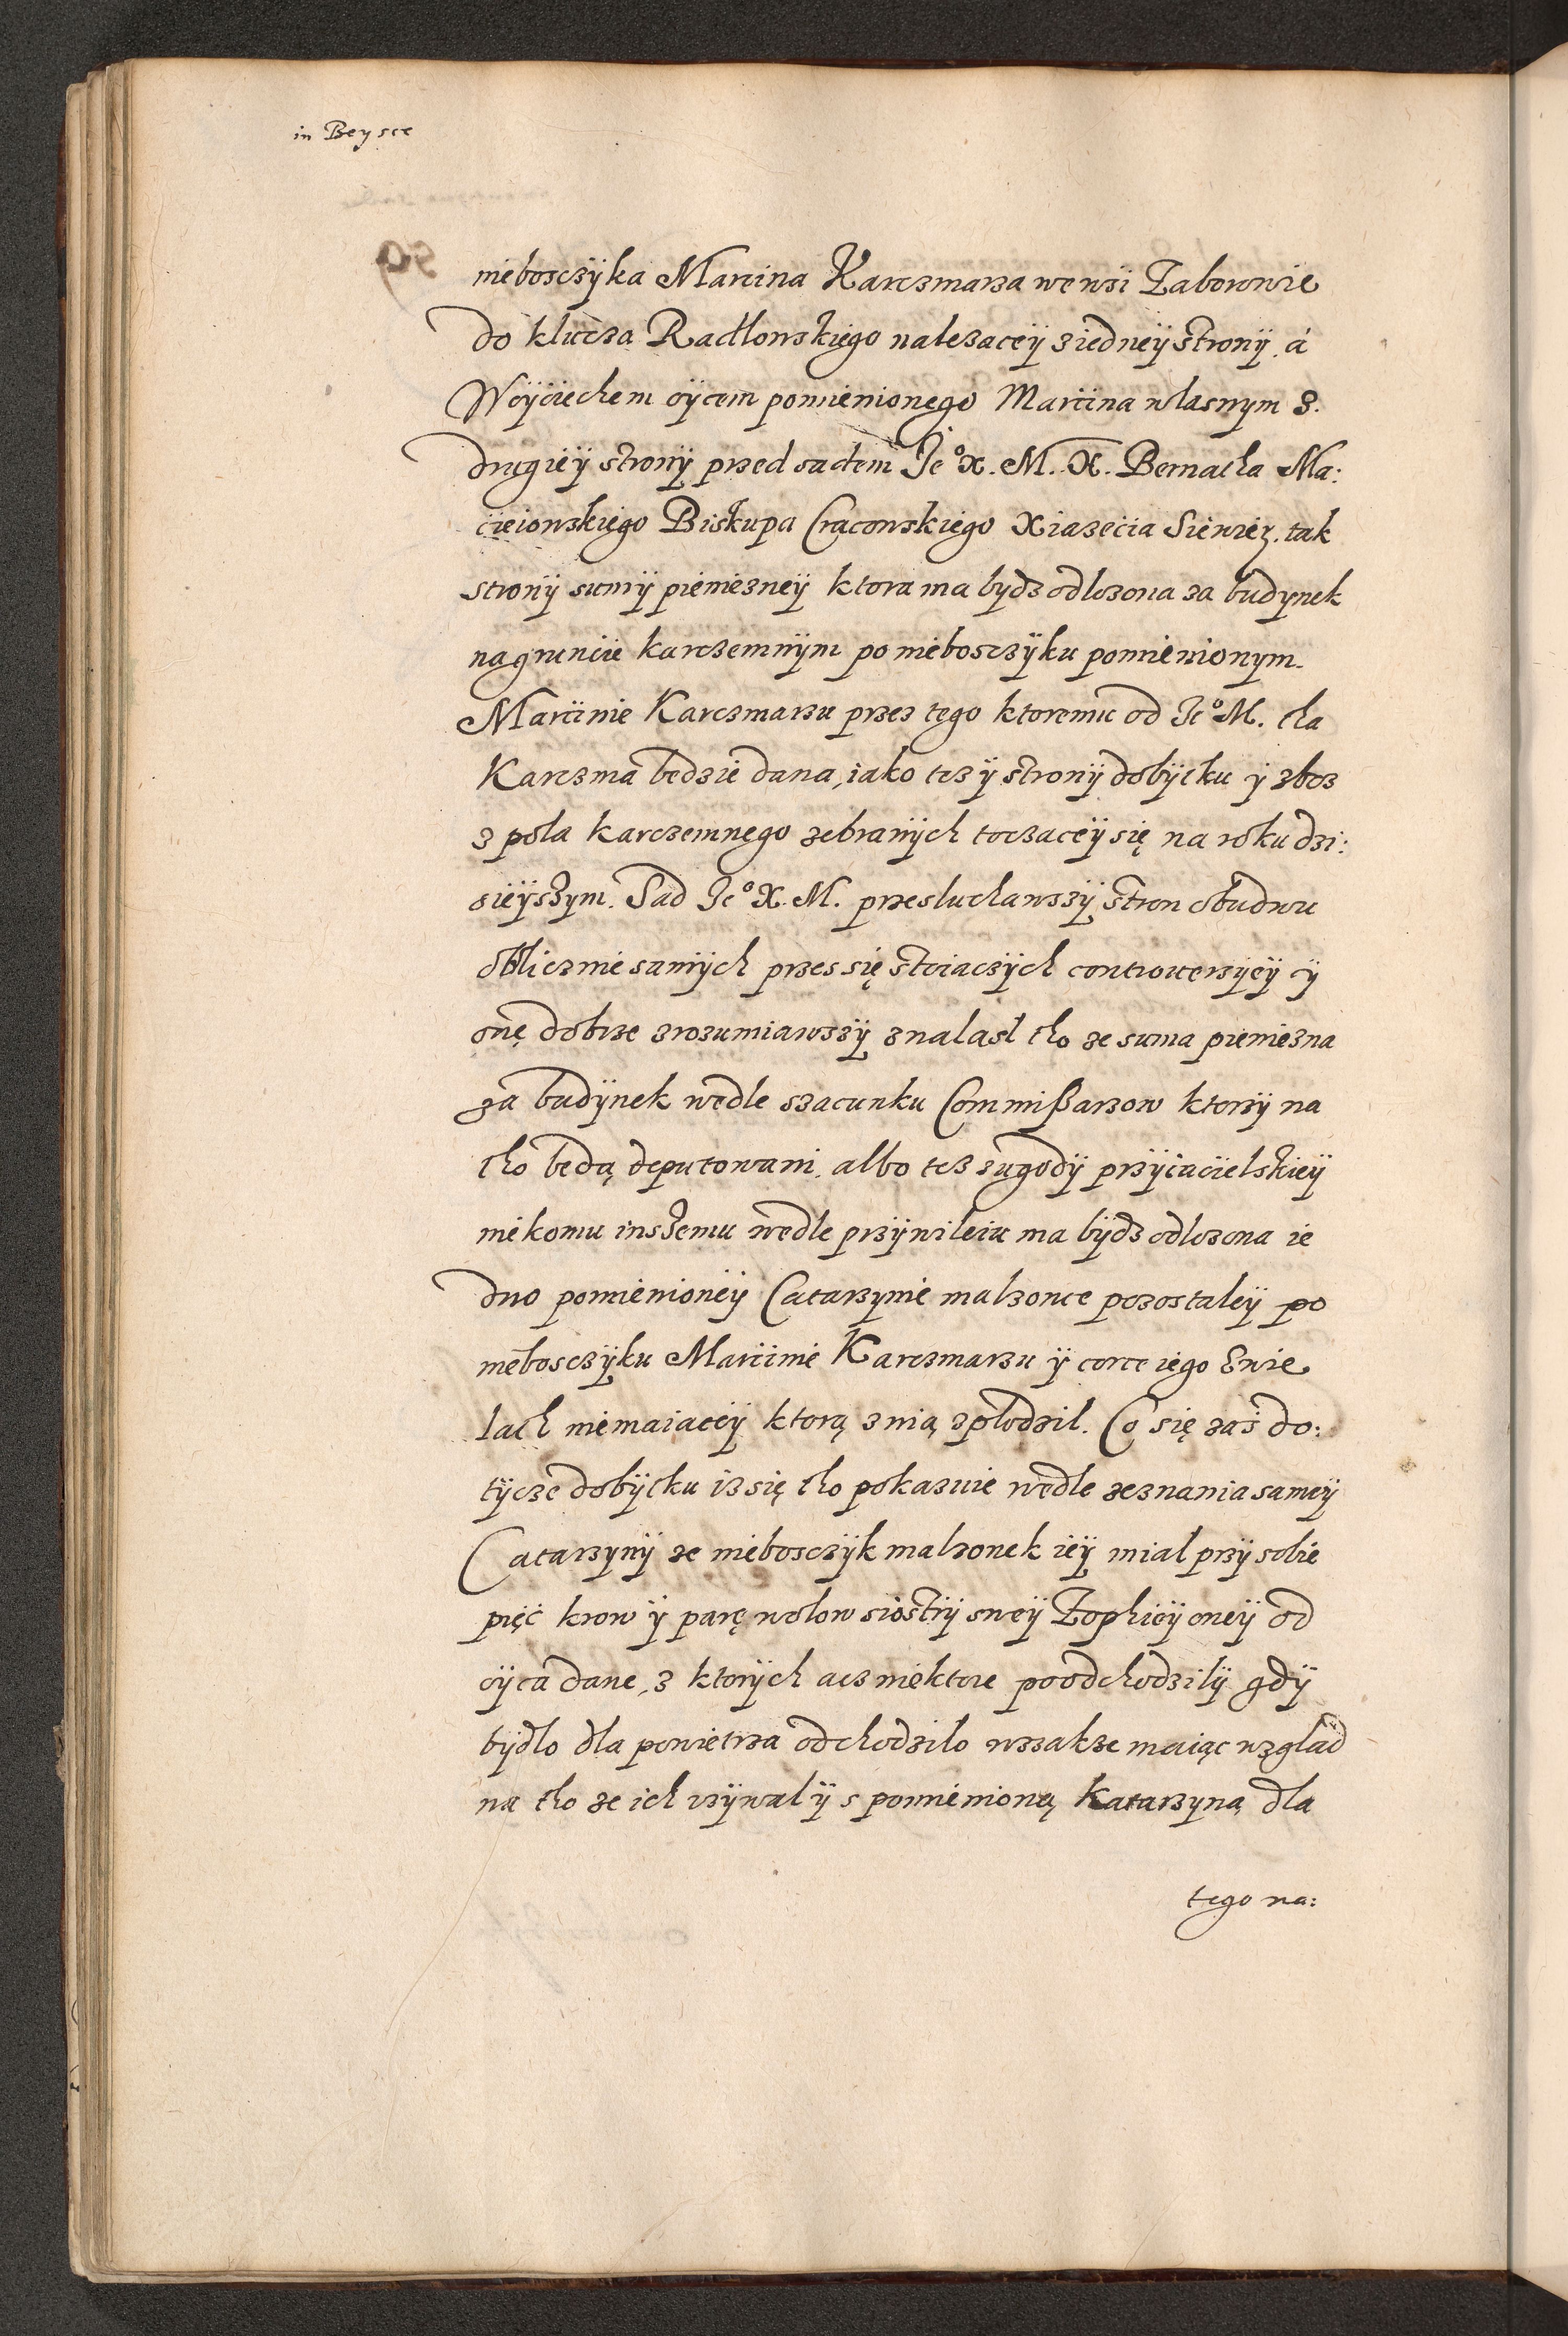 in Beysce
nieboszczÿka Marcina Karczmarza we wsi Zaborowie
do klucza Radlowskiego nalezaceÿ z iedneÿ stronÿ, á
Woÿciechem oÿcem pomienionego Marcina wlasnym z
drugieÿ stronÿ przed sadem Jeº X. M. X. Bernatha Ma:
cieiowskiego Biskupa Cracowskiego Xiazecia Siewier. tak
stronÿ sumÿ pienieznеÿ ktora ma bydz odlozona za budynek
na gruncie karczemnÿm po nieboszczÿku pomienionym
Marcinie Karczmarzu przez tego ktoremu od Jeº M. tha
Karczma bedzie dana, iako tez ÿ stronÿ dobÿtku ÿ zboz
z pola karczemnego zebranÿch toczaceÿ się na roku dzi:
sieÿszym. Sad Jeº X. M. przesluchawszÿ stron obudwu
oblicznie samÿch przez się stoiaczÿch controwersÿeÿ ÿ
onę dobrze zrozumiawszÿ znalasl tho ze suma pieniezna
za budÿnek wedle szacunku Commißarzow ktorzÿ na
tho bedą deputowani, albo tez z ugodÿ przÿiacielskieÿ
nikomu inszemu wedle przÿwileiu ma bÿdz odlozona ie
dno pomienioneÿ Catarzynie malzonce pozostaleÿ po
nieboszczÿku Marcinie Karczmarzu ÿ corce iego w wie
lach niemaiaceÿ ktorą z nią zplodzil. Co się zaś do:
tÿcze dobÿtku iz się tho pokazuie wedle zeznania sameÿ
Catarzynÿ ze nieboszczÿk malzonek ieÿ mial przÿ sobie
pięć krow ÿ parę wolow siostrÿ sweÿ Zophieÿ oneÿ od
oÿca dane, z ktorÿch acz niektore poodchodzilÿ gdÿ
bÿdlo dla powietrza odchodzilo wszakze maiąc wzglad
na tho ze ich uzÿwalÿ s pomienioną Katarzyną dla
tego na: